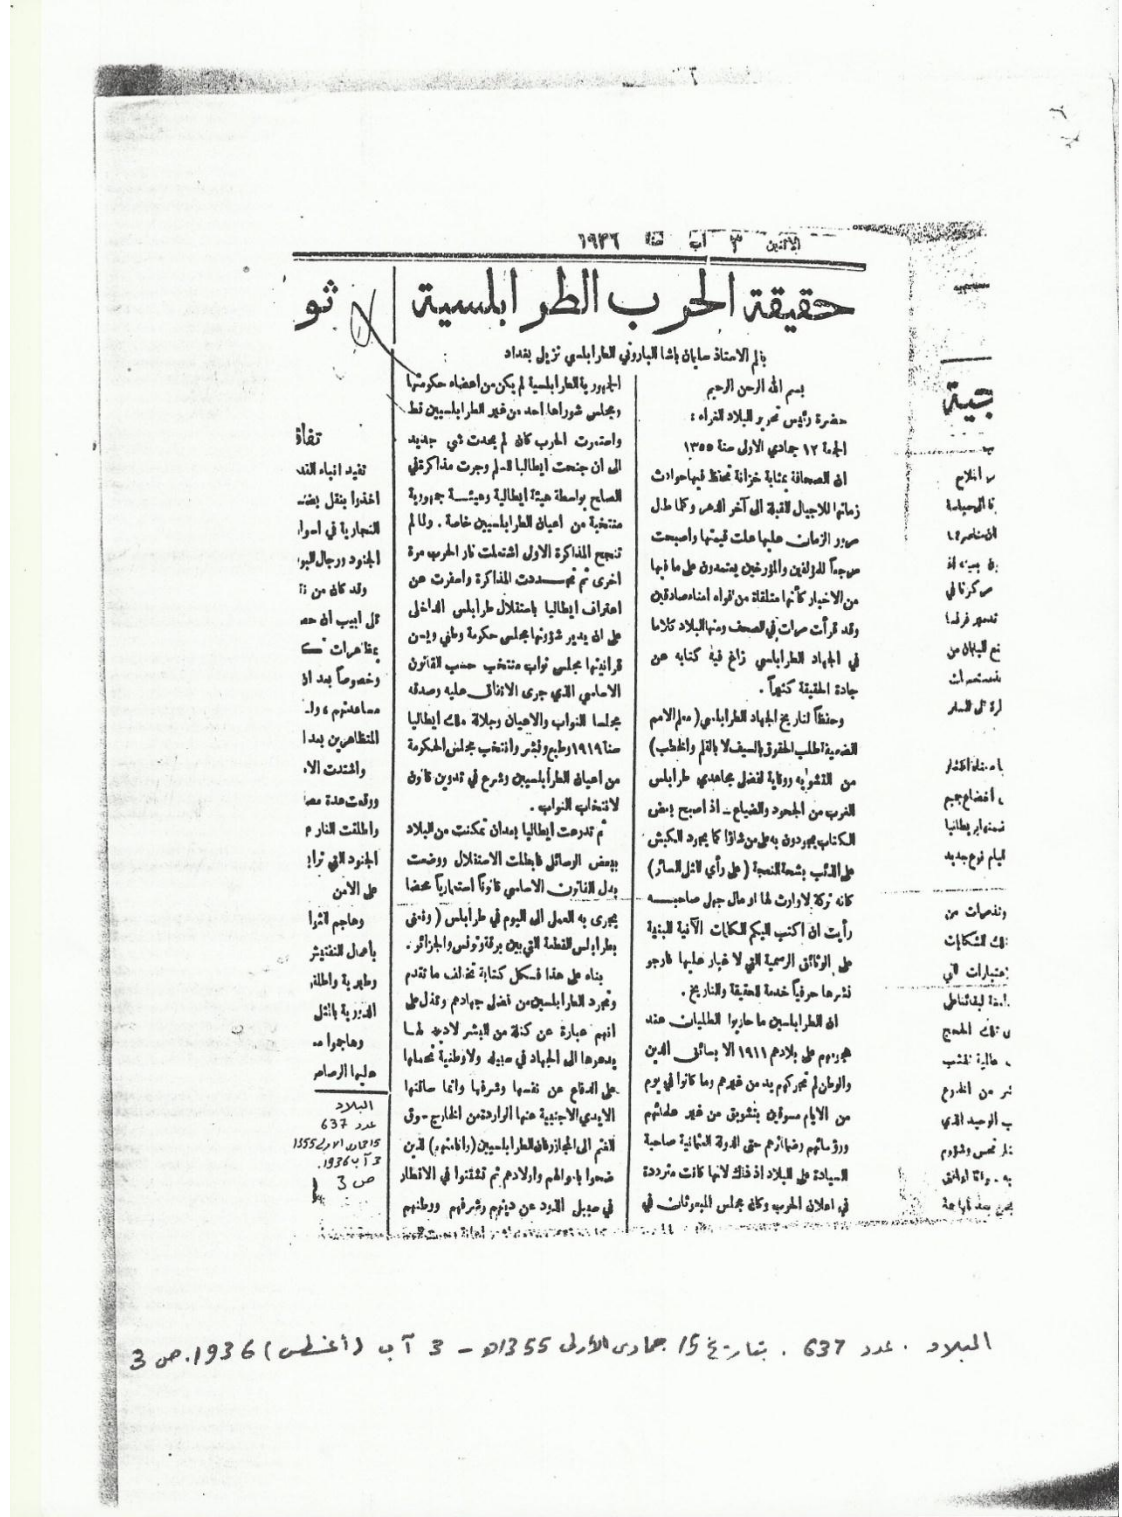 الاثنين ٣ آب سنة ١٩٣٦
حقيقة الحرب الطرابلسية
بقلم الاستاذ سليمان باشا الباروني الطرابلسي نزيل بغداد
بسم الله الرحمن الرحيم
حضرة رئيس تحرير البلاد الغراء :
الجمعة ١٢ جمادي الاولى سنة ١٣٥٥
ان الصحافة بمثابة خزانة تحفظ فيها حوادث
زماتها للاجيال المقبلة الى آخر الدهر وكلما طال
مرور الزمان عليها علت قيمتها واصبحت
مرجعاً للمؤلفين والمؤرخين يعتمدون على ما فيها
من الاخبار كأنها متلقاة من افواه امناء صادقين
وقد قرأت مرات في الصحف ومنها البلاد كلاما
في الجهاد الطرابلسي زاغ فيه كتابه عن
جادة الحقيقة كثيراً .
وحفظاً لتاريخ الجهاد الطرابلسي (معلم الامم
الضعيفة طلب الحقوق بالسيف لا بالقلم والخطب)
من التشويه ووقاية لفضل مجاهدي طرابلس
الغرب من الجحود والضياع ـ اذ اصبح بعض
الكتاب يجودون به على من شاؤا كما يجود الكبش
على الذئب بشحمة النعجة (على رأي المثل السائر)
كانه تركة لا وارث لها او مال جهل صاحبه
رأيت ان اكتب اليكم الكلمات الآتية المبنية
على الوثائق الرسمية التي لا غبار عليها فارجو
نشرها حرفياً خدمة للحقيقة والتاريخ .
ان الطرابلسيين ما حاربوا الطليان عند
هجومهم على بلادهم ١٩١١ الا بسائق الدين
والوطن لم تحركهم يد من غيرهم وما كانوا في يوم
من الايام مسوقين بتشويق من غير علمائهم
ورؤسائهم وزعمائهم حتى الدولة العثمانية صاحبة
السيادة على البلاد اذ ذاك لانها كانت مترددة
في اعلان الحرب وكان مجلس المبعوثان في
الجمهورية الطرابلسية لم يكن من اعضاء حكومتها
ومجلس شوراها احد من غير الطرابلسيين قط
واستمرت الحرب كان لم يحدث شي جديد
الى ان جنحت ايطاليا للسلم وجرت مذاكرة في
الصلح بواسطة هيئة ايطالية وهيئة جمهورية
منتخبة من اعيان الطرابلسيين خاصة . ولما لم
تنجح المذاكرة الاولى اشتعلت نار الحرب مرة
اخرى ثم تجددت المذاكرة واسفرت عن
اعتراف ايطاليا باستقلال طرابلس الداخلي
على ان يدير شؤونها مجلس حكومة وطني ويسن
قوانينها مجلس نواب منتخب حسب القانون
الاساسي الذي جرى الاتفاق عليه وصدقه
مجلسا النواب والاعيان وجلالة ملك ايطاليا
سنة ١٩١٩ وطبع ونشر وانتخب مجلس الحكومة
من اعيان الطرابلسيين وشرع في تدوين قانون
لانتخاب النواب .
ثم تدرعت ايطاليا بعد ان تمكنت من البلاد
ببعض الوسائل فابطلت الاستقلال ووضعت
بدل القانون الاساسي قانوناً استعمارياً محضا
يجري به العمل الى اليوم في طرابلس (ونعني
بطرابلس القطعة التي بين برقة وتونس والجزائر .
بناء على هذا فكل كتابة تخالف ما تقدم
وتجرد الطرابلسيين من فضل جهادهم وتدل على
انهم عبارة عن كتلة من البشر لا دين لها
يدعوها الى الجهاد في سبيله ولا وطنية تحملها
على الدفاع عن نفسها وشرفها وانما ساقتها
الايدي الاجنبية عنها الواردة من الخارج سوق
الغنم الى المجازر فان الطرابلسيين الذين
ضحوا باموالهم واولادهم ثم تشتتوا في الاقطار
في سبيل الذود عن دينهم وشرفهم ووطنهم
ثو
تفاق
تفيد انباء القد
اخذوا بنقل بضـ
التجارية في اسوا
الجنود ورجال البو
وقد كان من
تل ابيب ان حـ
بمظاهرات
وخصوصاً بعد ان
مساعدتهم ، ولـ
المتظاهرين بعد ا
واشتدت الا
ووقعت عدة مصا
واطلقت النار
الجنود التي ترا
على الامن
وهاجم الثوا
باعمال التفتيش
وطبرية واطلقـ
الدورية بالمثل
وهاجموا
عليها الرصاص
البلاد
عدد 637
15 جمادى الاولى 1355
3 آب 1936
ص 3
البلاد . عدد 637 . بتاريخ 15 جمادى الأولى 1355هـ - 3 آب (أغسطس) 1936. ص 3